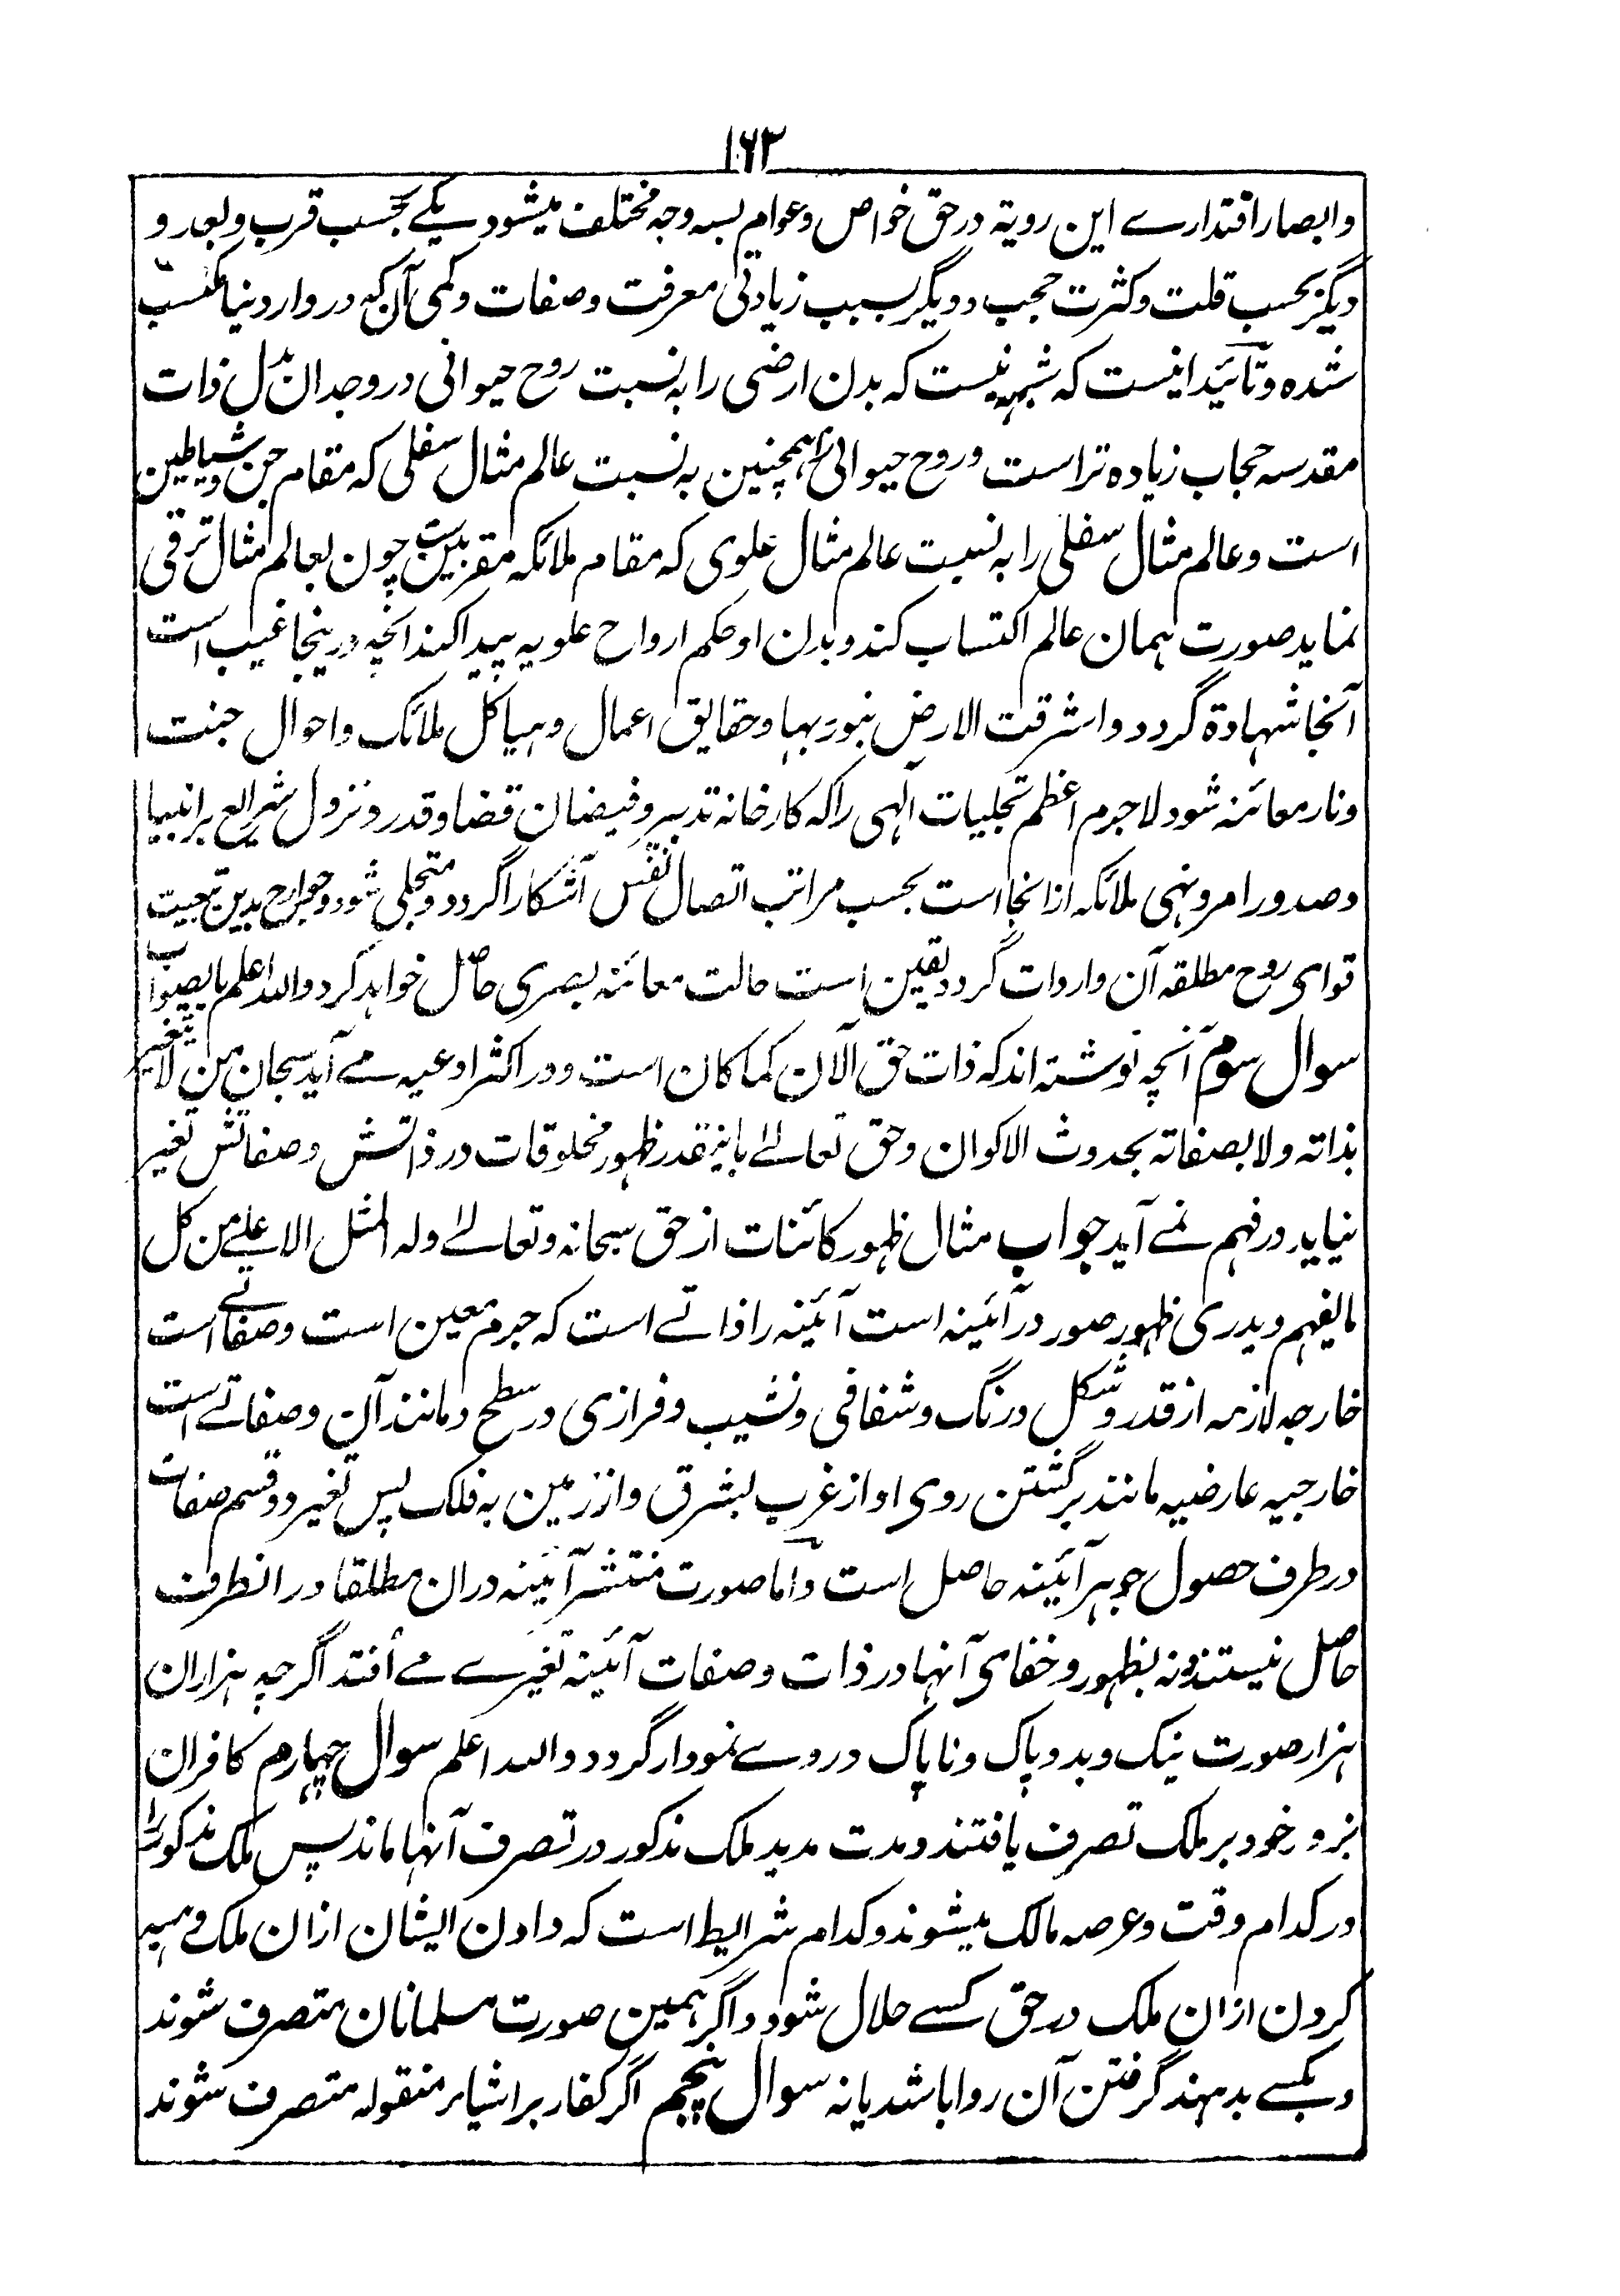 ۱۶۳
وابصار اقتدارے این رویته درحق خواص وعوام بسه وجه مختلف میشود یکے بحسب قرب وبعد رو
دیگر بحسب قلت وکثرت حجب ودیگر بسبب زیادتی معرفت وصفات وکمی آن که دردار دنیا مکتسب
شده وتائید اینست که شبهه نیست که بدن ارضی را به نسبت روح حیوانی در وجدان ذات
مقدسه حجاب زیاده تر است وروح حیوانی را همچنین به نسبت عالم مثال سفلی که مقام جن وشیاطین
است وعالم مثال سفلی را به نسبت عالم مثال علوی که مقام ملائکه مقربین ست چون بعالم مثال ترقی
نماید صورت همان عالم اکتساب کند وبدن او حکم ارواح علویه پیدا کند انچه درینجا غیب است
آنجا شهادة گردد واشرقت الارض بنور ربها وحقایق اعمال وهیاکل ملائک واحوال جنت
ونار معائنه شود لاجرم اعظم تجلیات الهی را که کارخانه تدبیر وفیضان قضا وقدر ونزول شرایع بر انبیا
وصدور امر ونهی ملائکه ازانجا است بحسب مراتب اتصال نفس آشکارا گردد ومتجلی شود وجوارح بدین تبعیت
قوای روح مطلقه آن واردات گردد یقین است حالت معائنه بصری حاصل خواهد کرد والله اعلم بالصواب
سوال سوم آنچه نوشته اند که ذات حق الآن کما کان است ودر اکثر ادعیه مے آید سبحان من لا یتغیر
بذاته ولا بصفاته بحدوث الاکوان وحق تعالےٰ باینقدر ظهور مخلوقات در ذاتش وصفاتش تغیر
نیاید در فهم نمے آید جواب مثال ظهور کائنات از حق سبحانه وتعالےٰ وله المثل الاعلے من کل
ما یفهم ویدری ظهور صور در آئینه است آئینه را ذاتے است که جرم معین است وصفاتے است
خارجه لازمه از قدر وشکل ورنگ وشفافی ونشیب وفرازی در سطح ومانند آن وصفاتے است
خارجیه عارضیه مانند برگشتن روی او از غرب بشرق واز زمین به فلک پس تغیر دو قسم صفات
درطرف حصول جوهر آئینه حاصل است واما صورت منتشر آئینه دران مطلقا در انطرف
حاصل نیستند ونه بظهور وخفای آنها در ذات وصفات آئینه تغیرے مے اُفتد اگرچه هزاران
هزار صورت نیک وبد وپاک وناپاک در وے نمودار گردد والله اعلم سوال چهارم کافران
بزور خود بر ملک تصرف یافتند ومدت مدید ملک مذکور در تصرف آنها ماند پس ملک مذکور را
در کدام وقت وعرصه مالک میشوند وکدام شرایط است که دادن ایشان ازان ملک وهبه
کردن ازان ملک درحق کسے حلال شود واگر همین صورت مسلمانان متصرف شوند
وبکسے بدهند گرفتن آن روا باشد یا نه سوال پنجم اگر کفار بر اشیاء منقوله متصرف شوند